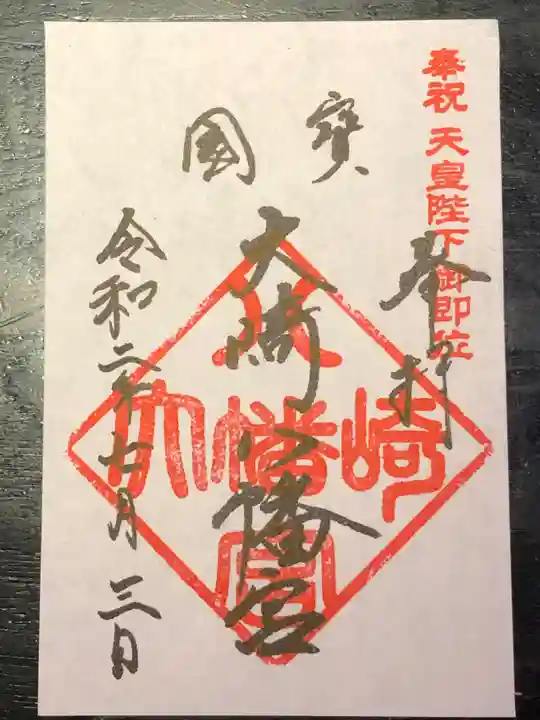 奉祝 天皇陛下御即位
奉拝
寳
國
大崎八幡宮
令和二年七月三日
大崎八幡宮